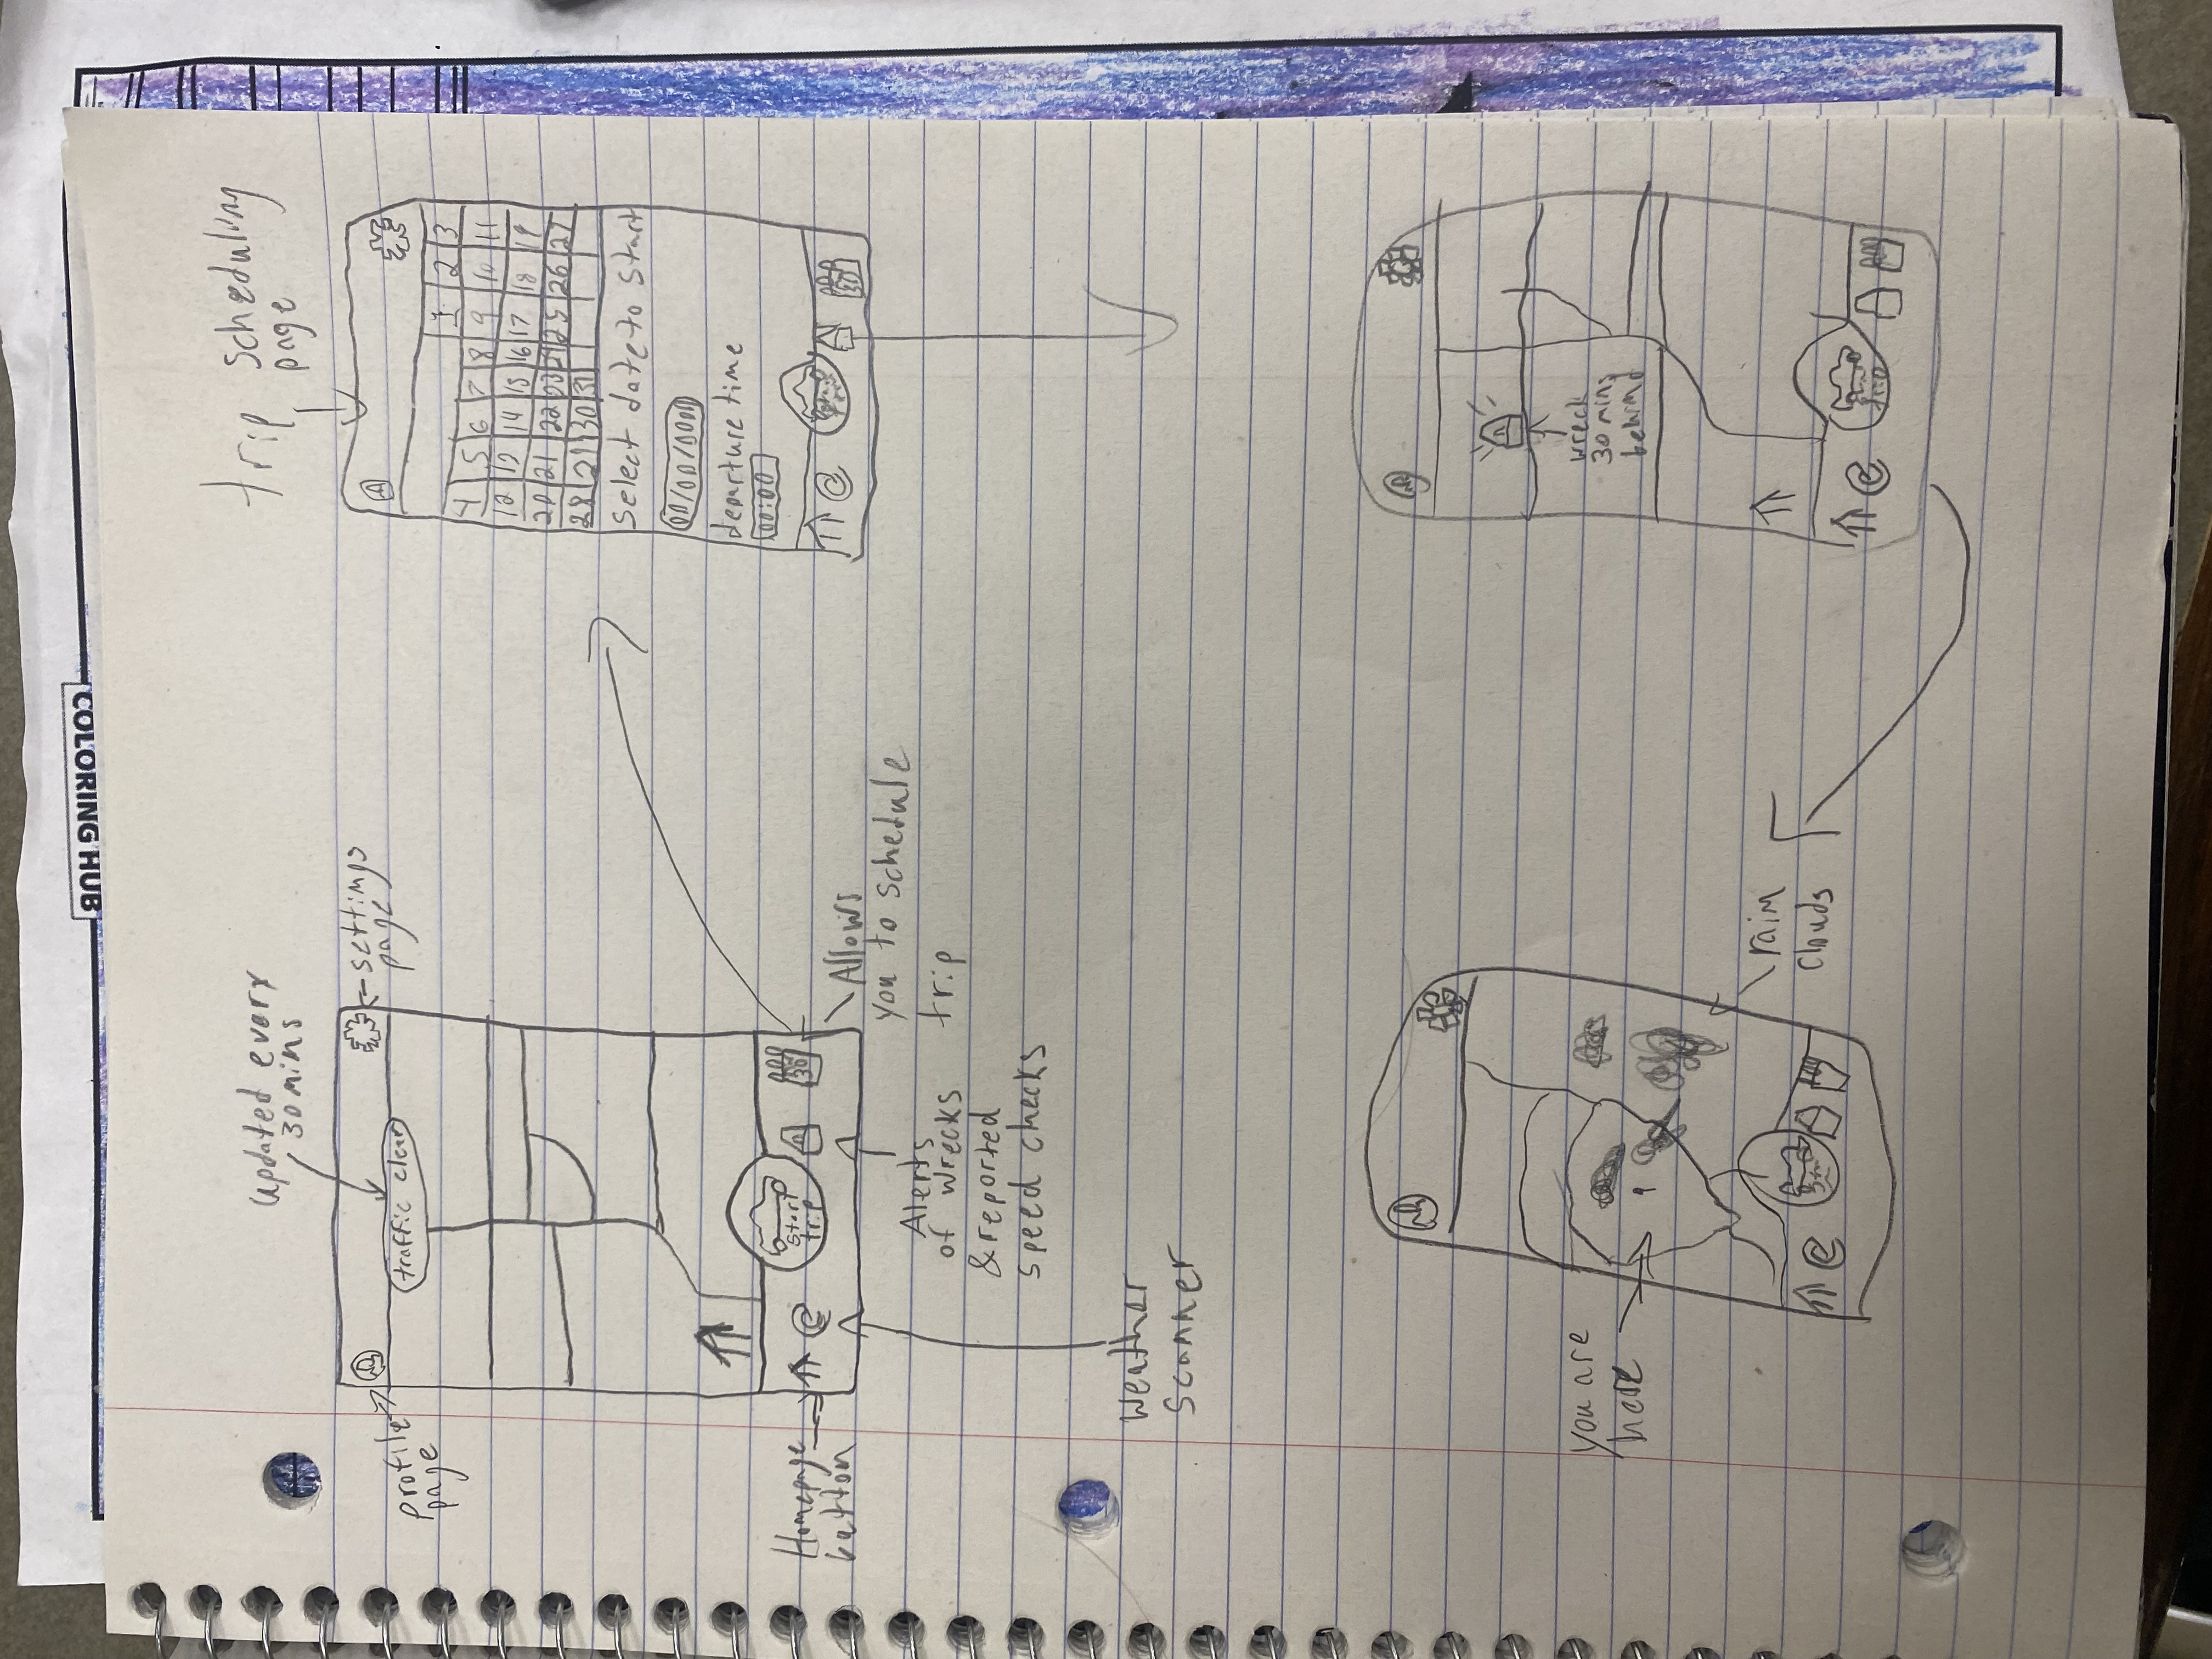 COLORING HUB
updated every
30 mins
profile
page
settings
page
traffic clear
start
trip
30
Homepage
button
Allows
you to schedule
trip
Alerts
of wrecks
& reported
speed checks
Weather
Scanner
trip scheduling
page
1 2 3
4 5 6 7 8 9 10 11
12 13 14 15 16 17 18 19
20 21 22 23 24 25 26 27
28 29 30 31
Select date to Start
00/00/0000
departure time
00:00
30
you are
here
rain
clouds
wreck
30 mins
behind
trip